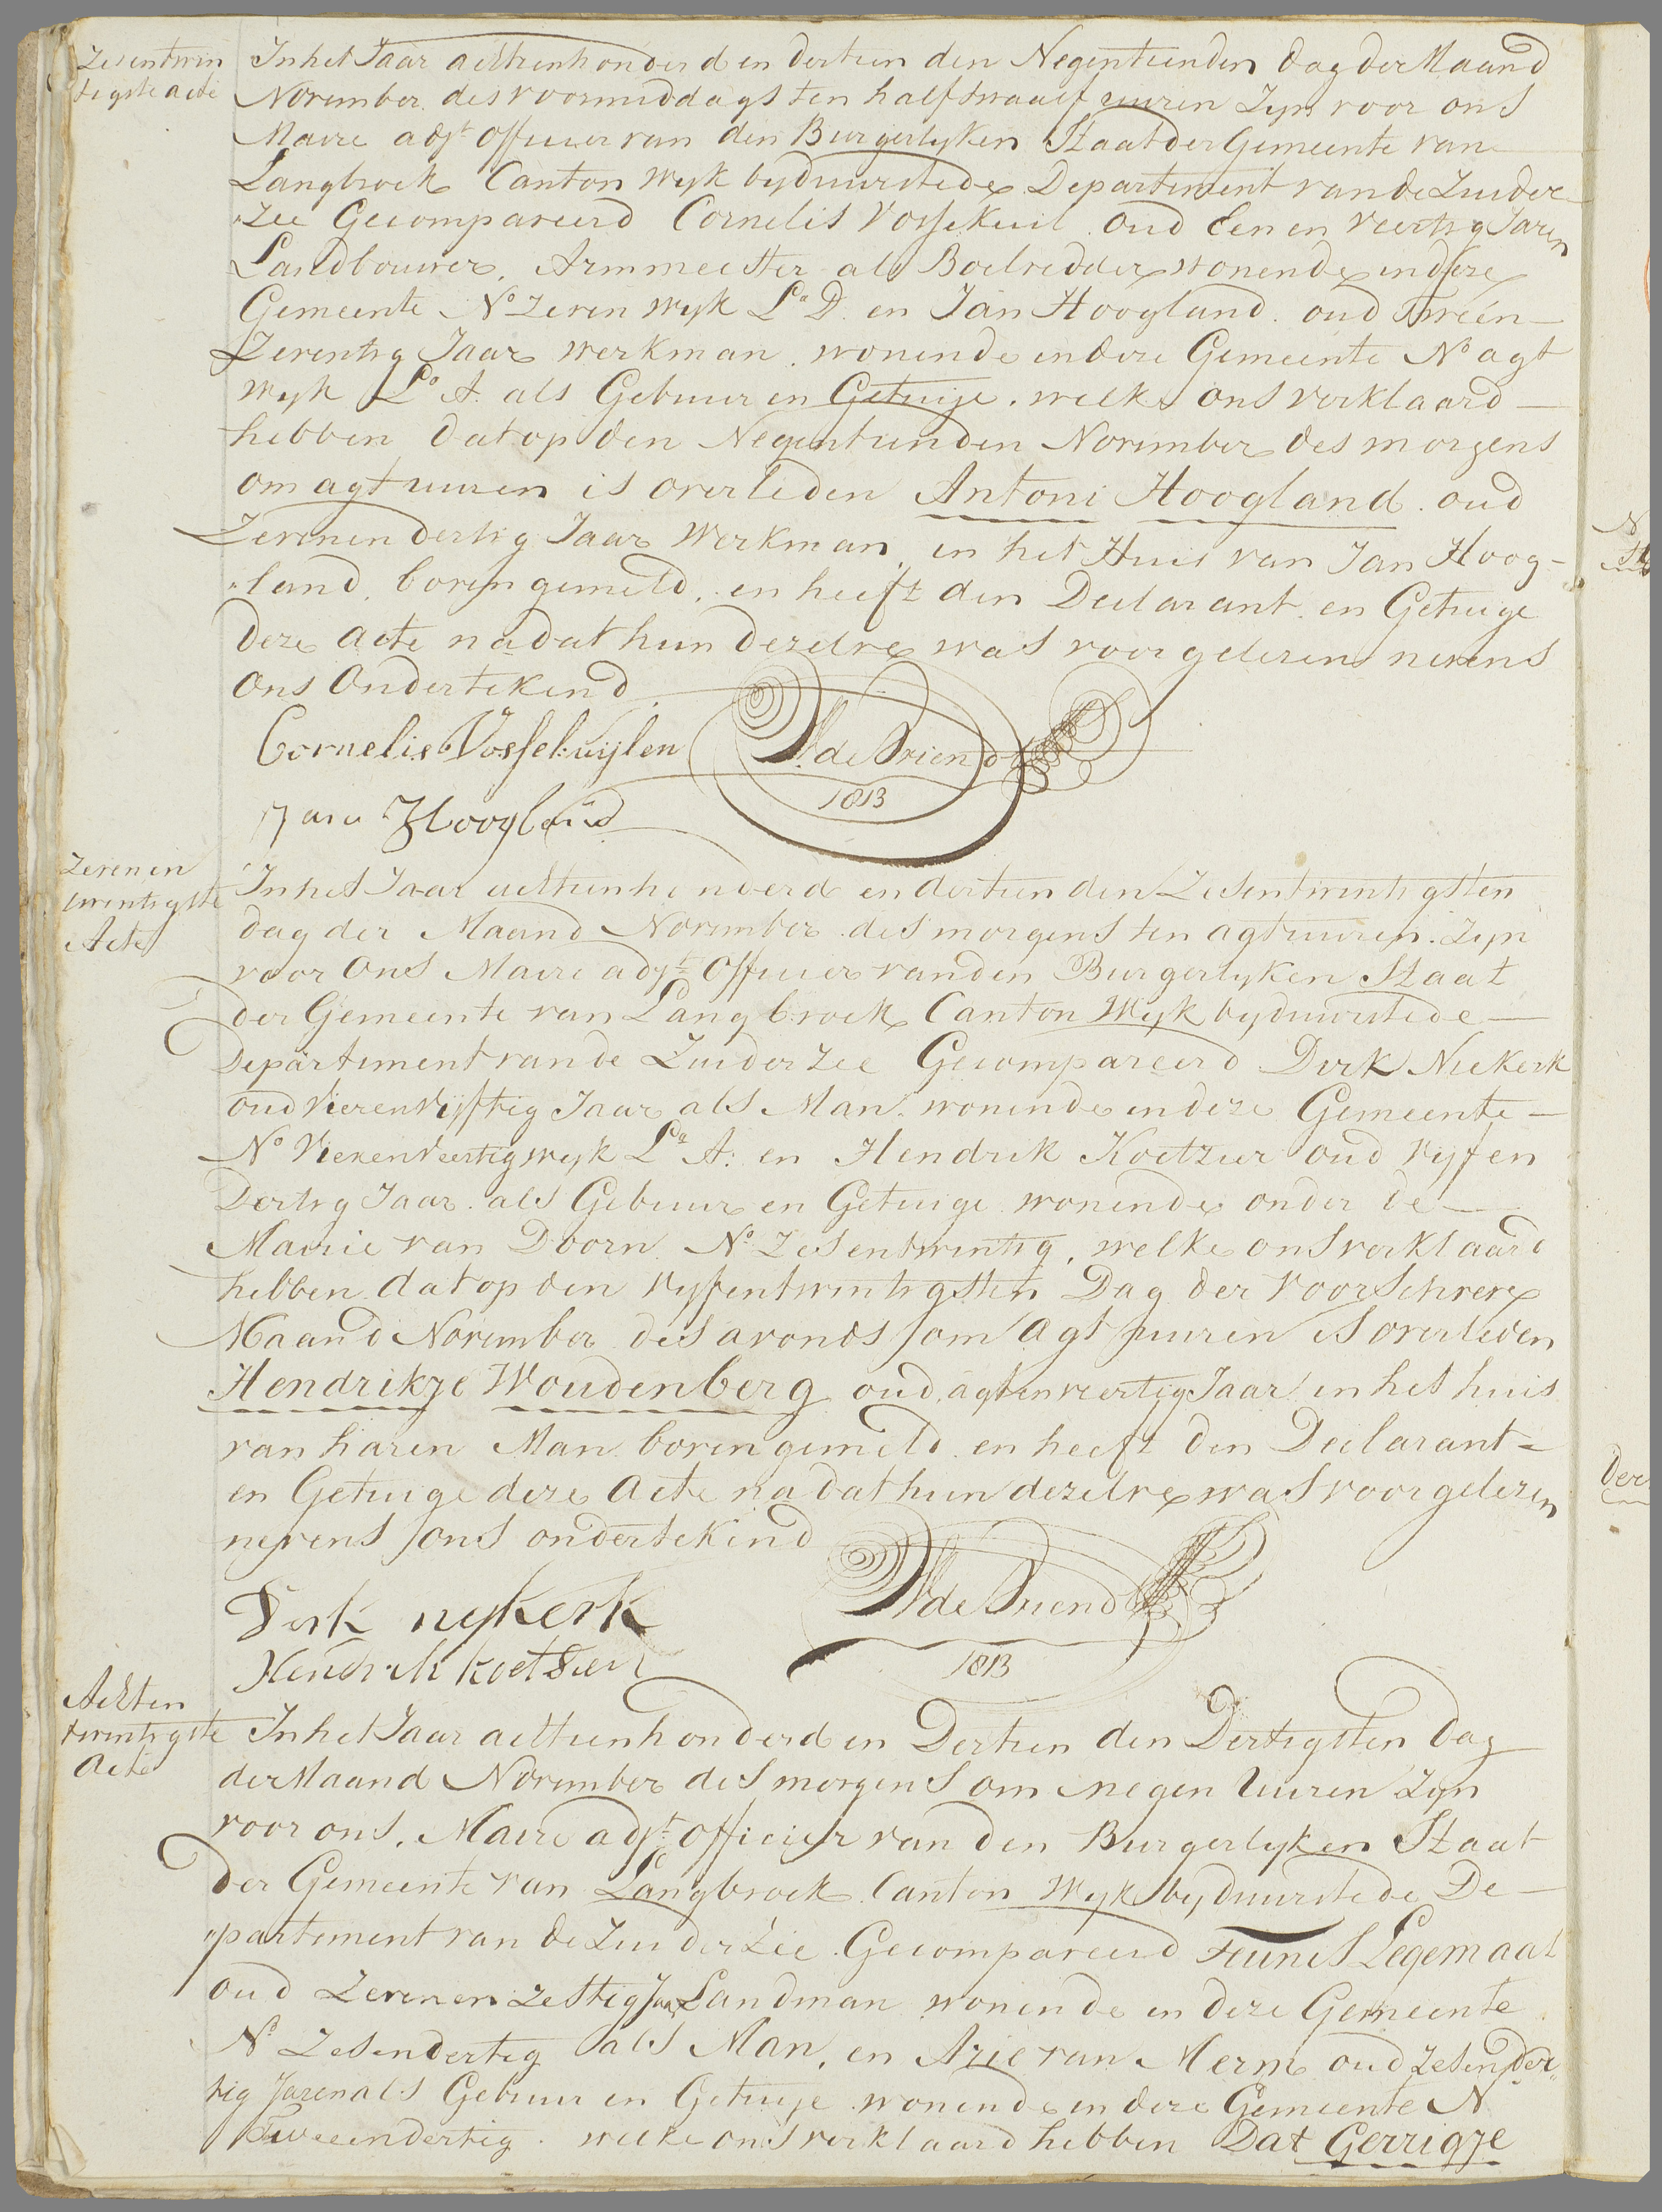 Zesentwin
tigste acte
In het Jaar achtienhonderd en dertien den Negentienden dag der Maand
November des voormiddags ten half twaalf uuren Zyn voor ons
Maire adjt. officier van den Burgerlyken Staat der Gemeente van
Langbroek Canton Wyk byduurstede Departement van de Zuider
"Zee Gecompareerd Cornelis Vossekuil oud Een en Veertig Jaren
Landbouwer, Armmeester als Boelredder wonende in deze
Gemeente No Zeven Wyk La D. en Jan Hoogland oud Tweën-
Zeventig Jaar Werkman wonende in deze Gemeente No agt
Wyk La A. als Gebuur en Getuige. welke ons verklaard
hebben dat op den Negentienden November des morgens
om agt uuren is overleden Antoni Hoogland oud
Zevenendertig Jaar Werkman in het Huis van Jan Hoog-
"land, boven gemeld, en heeft den Declarant en Getuige
deze acte nadat hun dezelve was voorgelezen nevens
Ons Ondertekend
Cornelis Vossekuijlen
de Vriend
1813
Jan Hoogland
Zeven en
twentigste
Acte
In het Jaar achtienhonderd en dertien den Zesentwintigsten
dag der Maand November des morgens ten agt uuren. Zyn
voor Ons Maire adjt. Officier van den Burgerlyken Staat
der Gemeente van Langbroek Canton Wyk byduurstede
Departement van de Zuider Zee Gecompareerd Dirk Niekerk
oud Vierenvyftig Jaar als Man. wonende in deze Gemeente
No Vierenveertig wyk La A: en Hendrik Koetzier oud vyf en
Dertig Jaar. als Gebuur en Getuige wonende onder de
Mairie van Doorn No Zesentwintig, welke ons verklaard
hebben dat op den vyfentwintigsten Dag der voorschreve
Maand November des avonds om agt uuren is overleden
Hendrikje Woudenberg oud agtenveertig Jaar in het huis
van haren Man boven gemeld en heeft den Declarant
en Getuige deze acte na dat hun dezelve was voorgelezen
nevens ons ondertekend
Dirk nykerk
de Vriend
1813
Hendrik koetsier
Achten
twintigste
acte
In het Jaar achtienhonderd en Dertien den Dertigsten Dag
der Maand November des morgens om negen Uuren Zyn
voor ons, Maire adjt: officier van den Burgerlyken Staat
der Gemeente van Langbroek Canton Wyk byduurstede De
"partement van de Zuider Zee Gecompareerd Teunis Legemaat
oud Zevenen Zestig Jaar Landman wonende in deze Gemeente
No Zesendertig als Man, en Arie van Merm oud Zesender
tig Jaren als Gebuur en Getuige wonende in deze Gemeente N
Tweeendertig. welke ons verklaard hebben Dat Gerrigje
Der